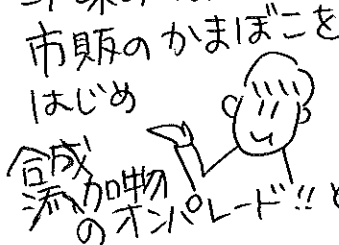 市販のかまぼこを
はじめ
合成
添加物
のオンパレード!!と